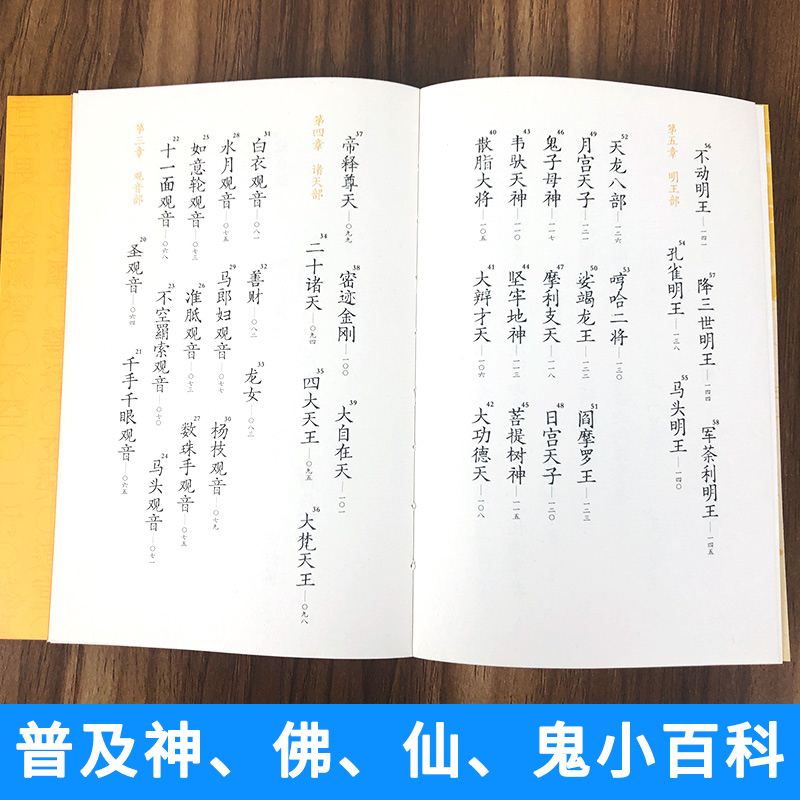 第三章 观音部
20 圣观音——〇六四
21 千手千眼观音——〇六五
22 十一面观音——〇六八
23 不空羂索观音——〇七〇
24 马头观音——〇七一
25 如意轮观音——〇七三
26 准胝观音——〇七三
27 数珠手观音——〇七五
28 水月观音——〇七五
29 马郎妇观音——〇七七
30 杨枝观音——〇七九
31 白衣观音——〇八一
32 善财——〇八二
33 龙女——〇八三
第四章 诸天部
34 二十诸天——〇九四
35 四大天王——〇九五
36 大梵天王——〇九八
37 帝释尊天——〇九九
38 密迹金刚——一〇〇
39 大自在天——一〇一
40 散脂大将——一〇五
41 大辩才天——一〇六
42 大功德天——一〇八
43 韦驮天神——一一〇
44 坚牢地神——一一三
45 菩提树神——一一五
46 鬼子母神——一一七
47 摩利支天——一一八
48 日宫天子——一二〇
49 月宫天子——一二一
50 娑竭龙王——一二二
51 阎摩罗王——一二三
52 天龙八部——一二六
53 哼哈二将——一三〇
第五章 明王部
54 孔雀明王——一三八
55 马头明王——一四〇
56 不动明王——一四一
57 降三世明王——一四四
58 军荼利明王——一四五
普及神、佛、仙、鬼小百科